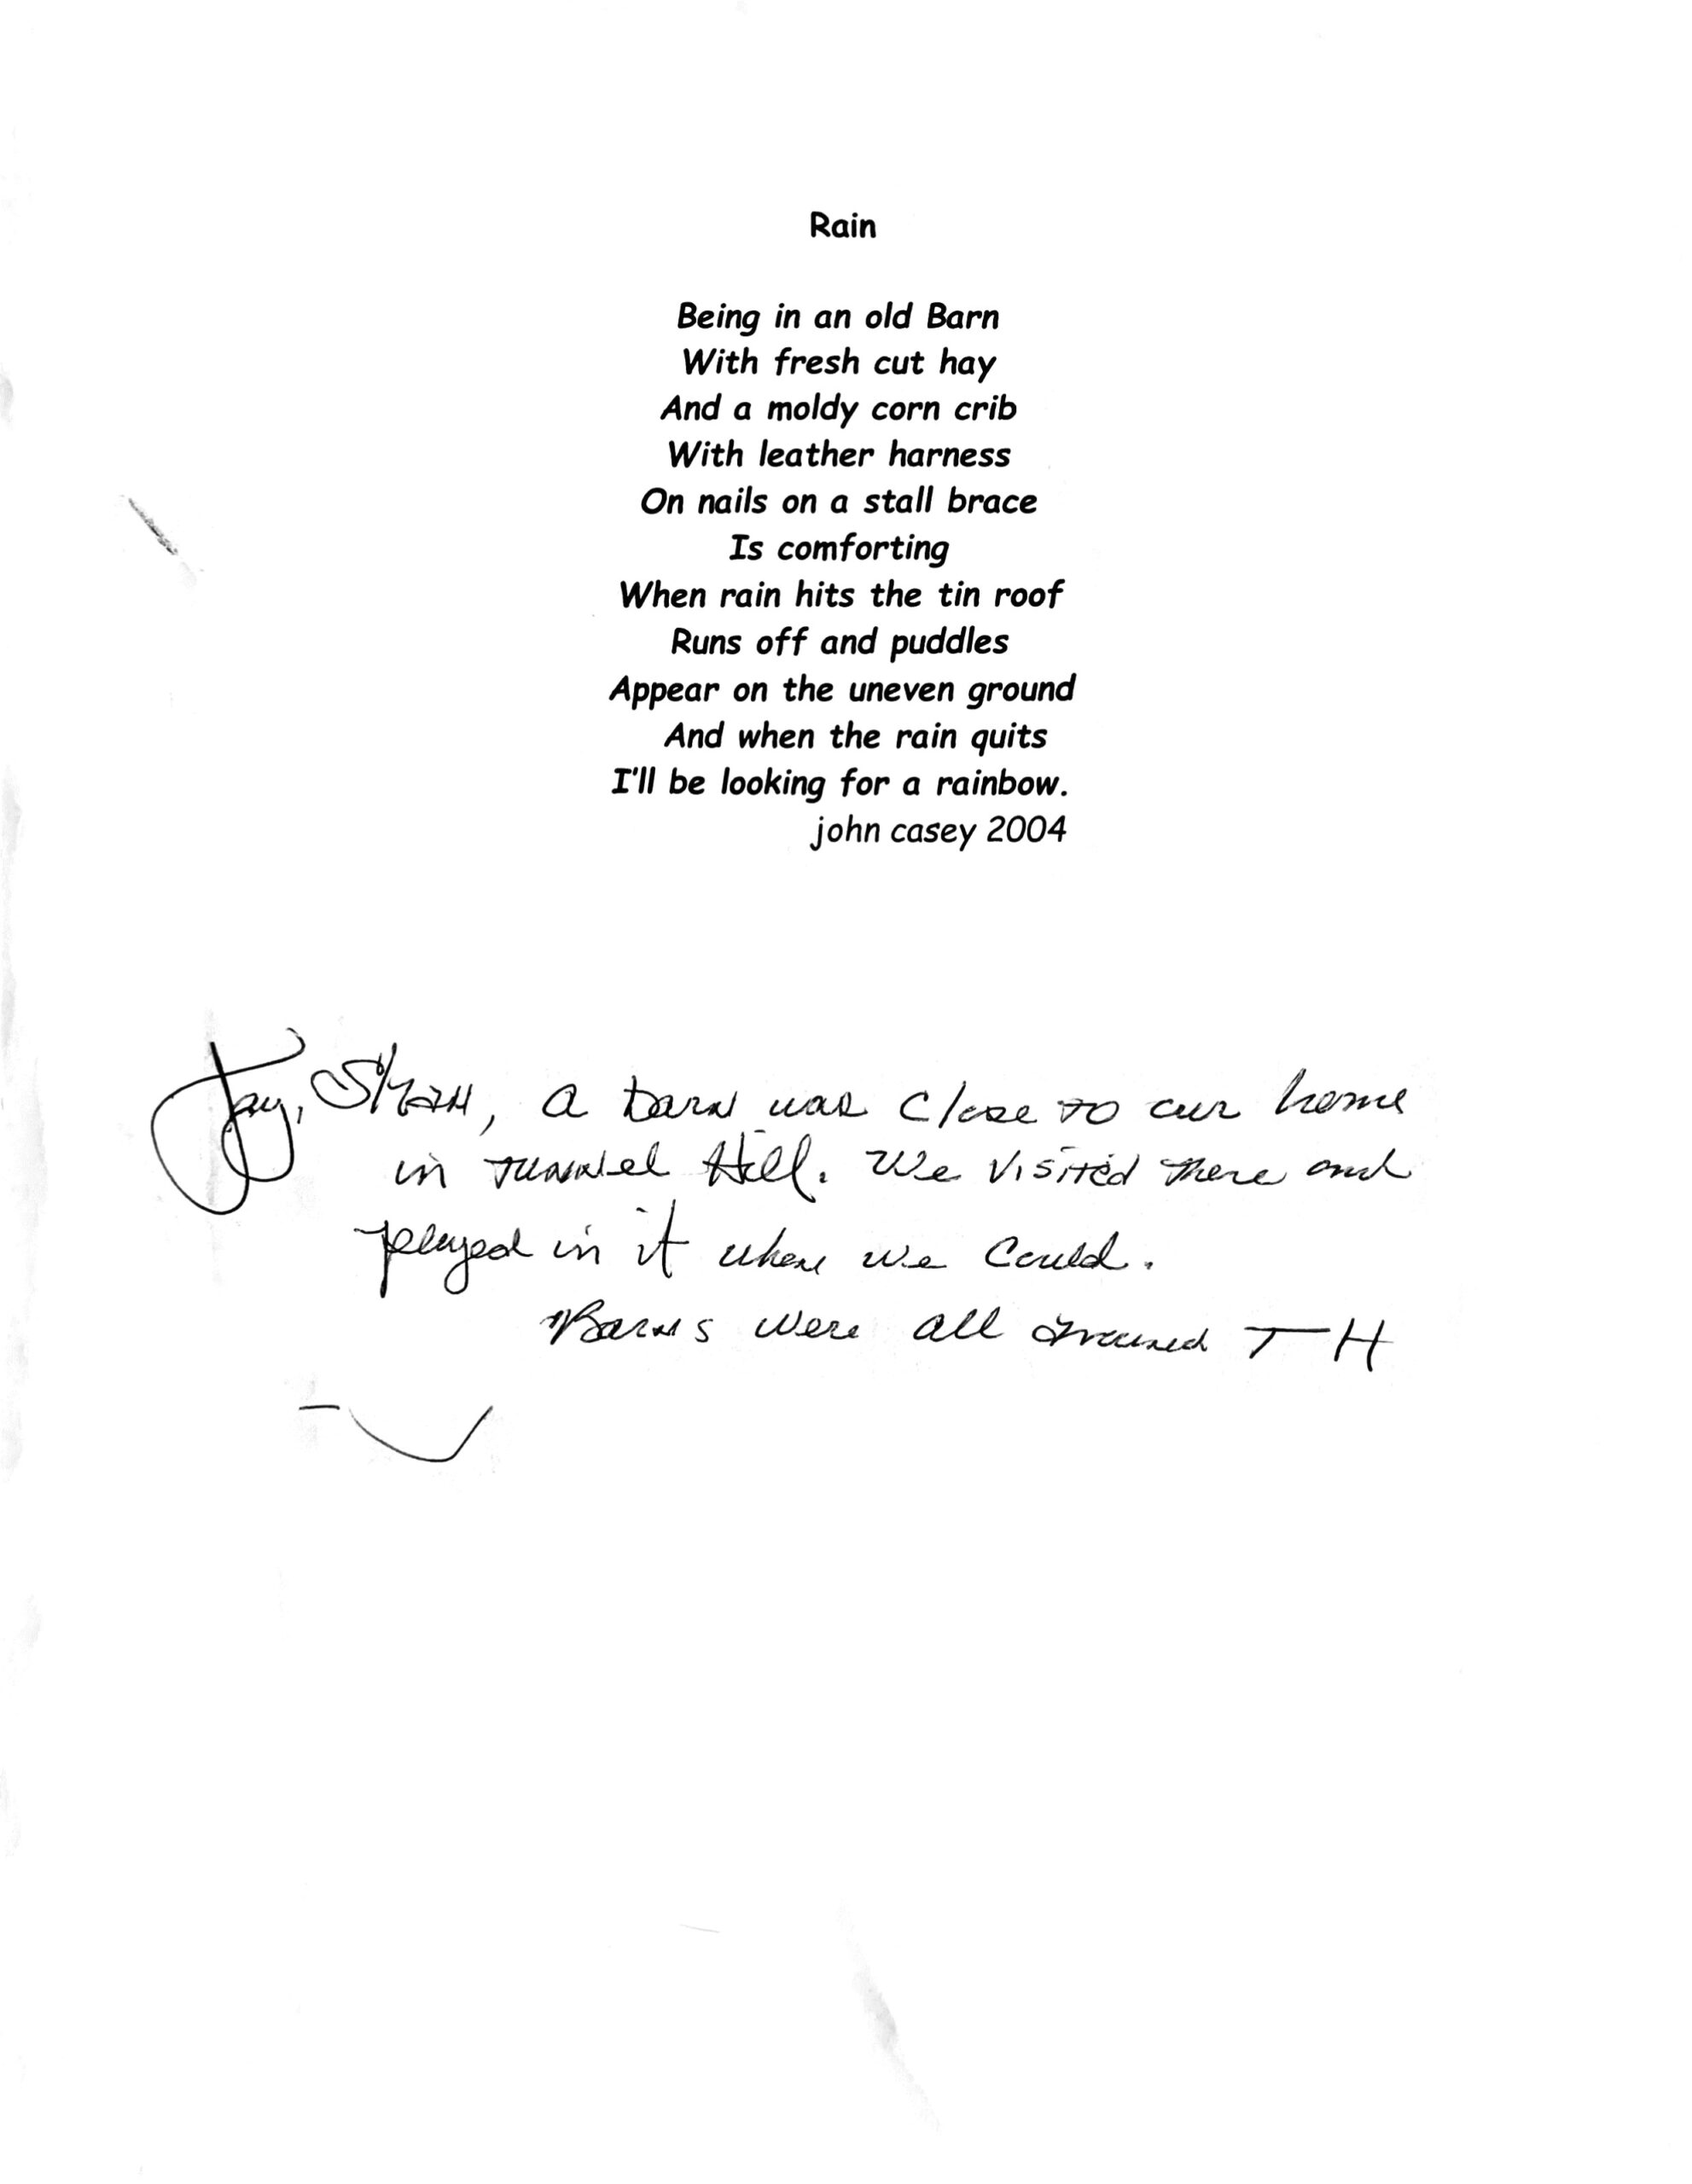 Rain
Being in an old Barn
With fresh cut hay
And a moldy corn crib
With leather harness
On nails on a stall brace
Is comforting
When rain hits the tin roof
Runs off and puddles
Appear on the uneven ground
And when the rain quits
I'll be looking for a rainbow.
john casey 2004
Jay, a barn was close to our home
in Tunnel Hill. We visited there and
played in it when we could.
Barns were all around T H